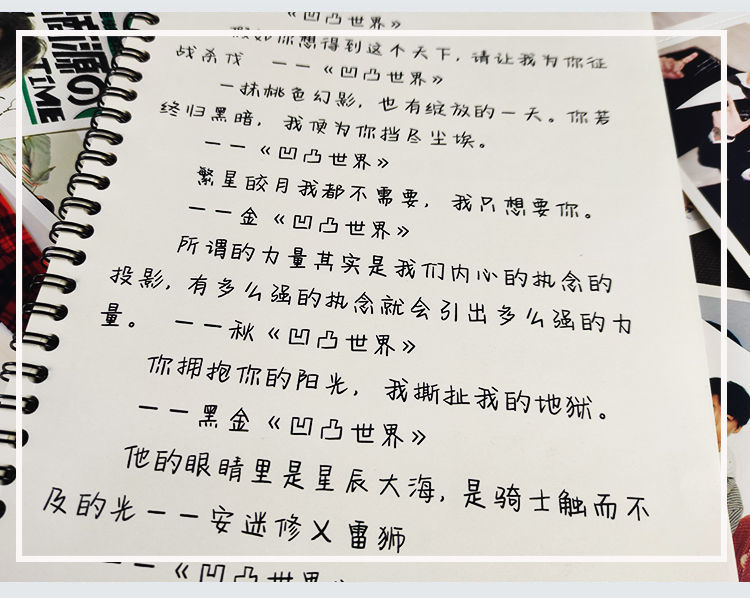 《凹凸世界》
假如你想得到这个天下，请让我为你征
战杀伐 ——《凹凸世界》
一抹桃色幻影，也有绽放的一天。你若
终归黑暗，我便为你挡尽尘埃。
——《凹凸世界》
繁星皎月我都不需要，我只想要你。
——金《凹凸世界》
所谓的力量其实是我们内心的执念的
投影，有多么强的执念就会引出多么强的力
量。 ——秋《凹凸世界》
你拥抱你的阳光，我撕扯我的地狱。
——黑金《凹凸世界》
他的眼睛里是星辰大海，是骑士触而不
及的光——安迷修乂雷狮
——《凹凸世界》
源の
TIME